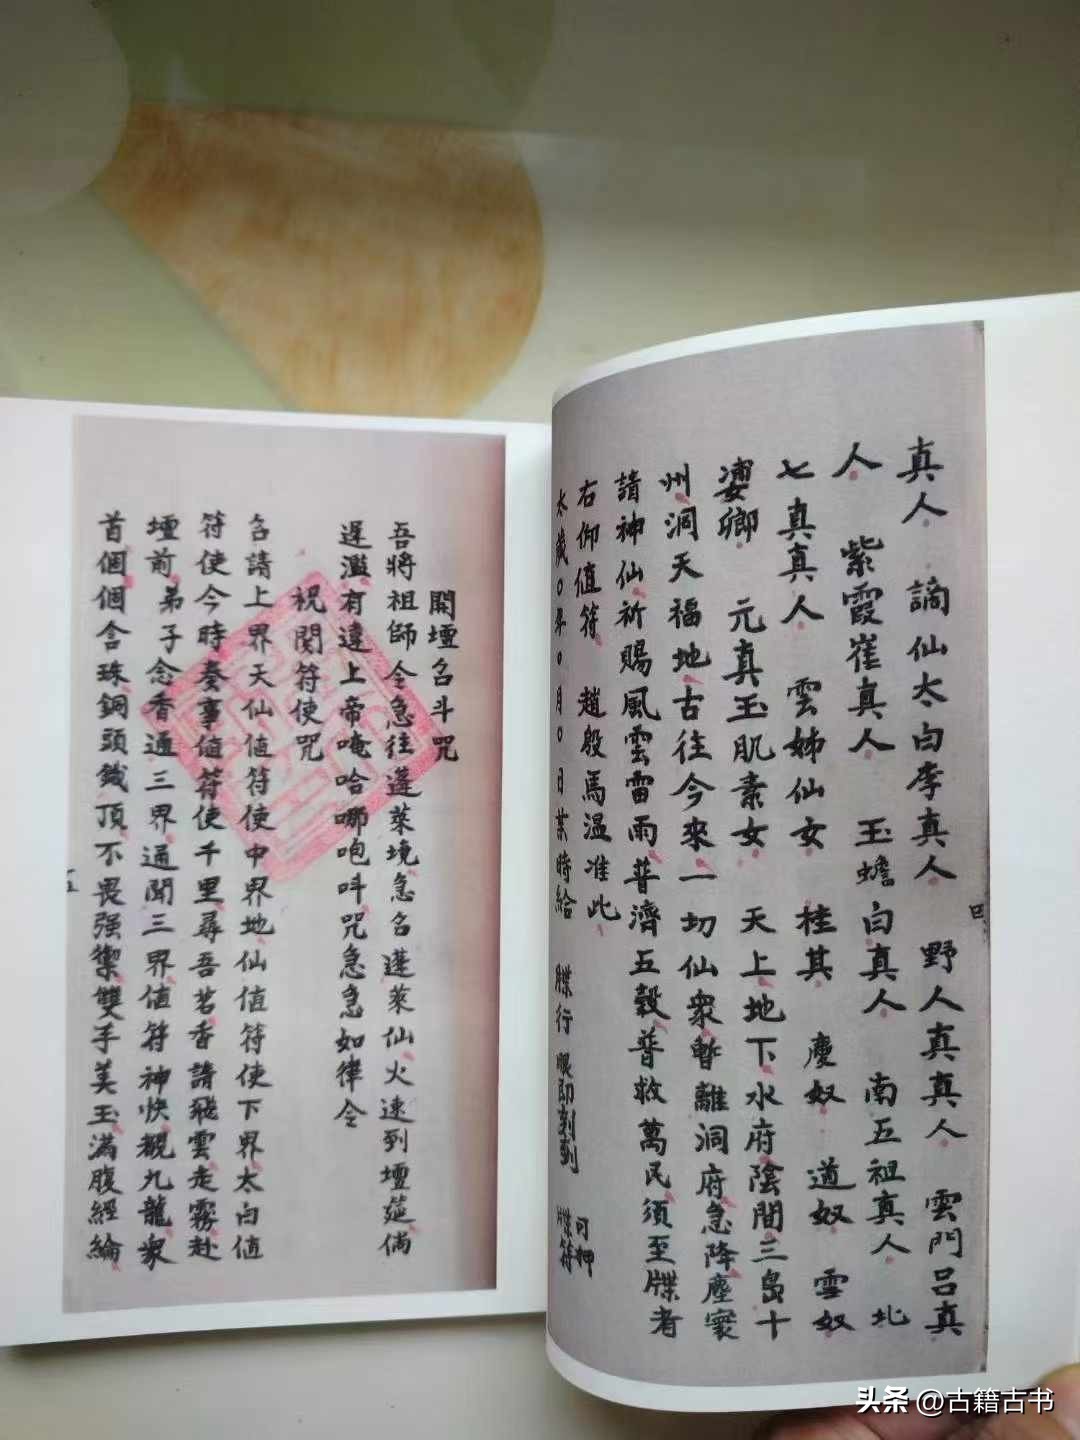 真人　謫仙太白李真人　野人真真人　雲門呂真
人　紫霞崔真人　玉蟾白真人　南五祖真人　北
七真真人　雲姊仙女　桂其　慶奴　道奴　雪奴
卿　元真玉肌素女　天上地下水府陰間三島十
州洞天福地古往今來一切仙衆暫離洞府急降塵寰
請神仙祈賜風雲雷雨普濟五穀普救萬民須至牒者
右仰值符　趙殷馬温准此
太歲〇年〇月〇日某時給　牒行　即刻到　牒符　可押
四
開壇召斗咒
吾將祖師令急往蓬萊境急召蓬萊仙火速到壇筵倘
遲濫有違上帝唵哈哪咆吽咒急急如律令
祝関符使咒
召請上界天仙值符使中界地仙值符使下界太白值
符使今時奏事值符使千里尋吾茗香請飛雲走霧赴
壇前弟子念香通三界通聞三界值符神快觀九龍衆
首個個含珠銅頭鐵頂不畏强禦雙手美玉滿腹經綸
五
头条 @古籍古书